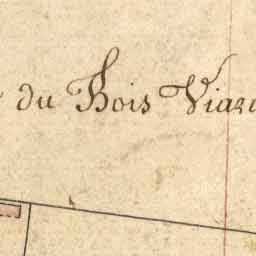 du Bois Viard